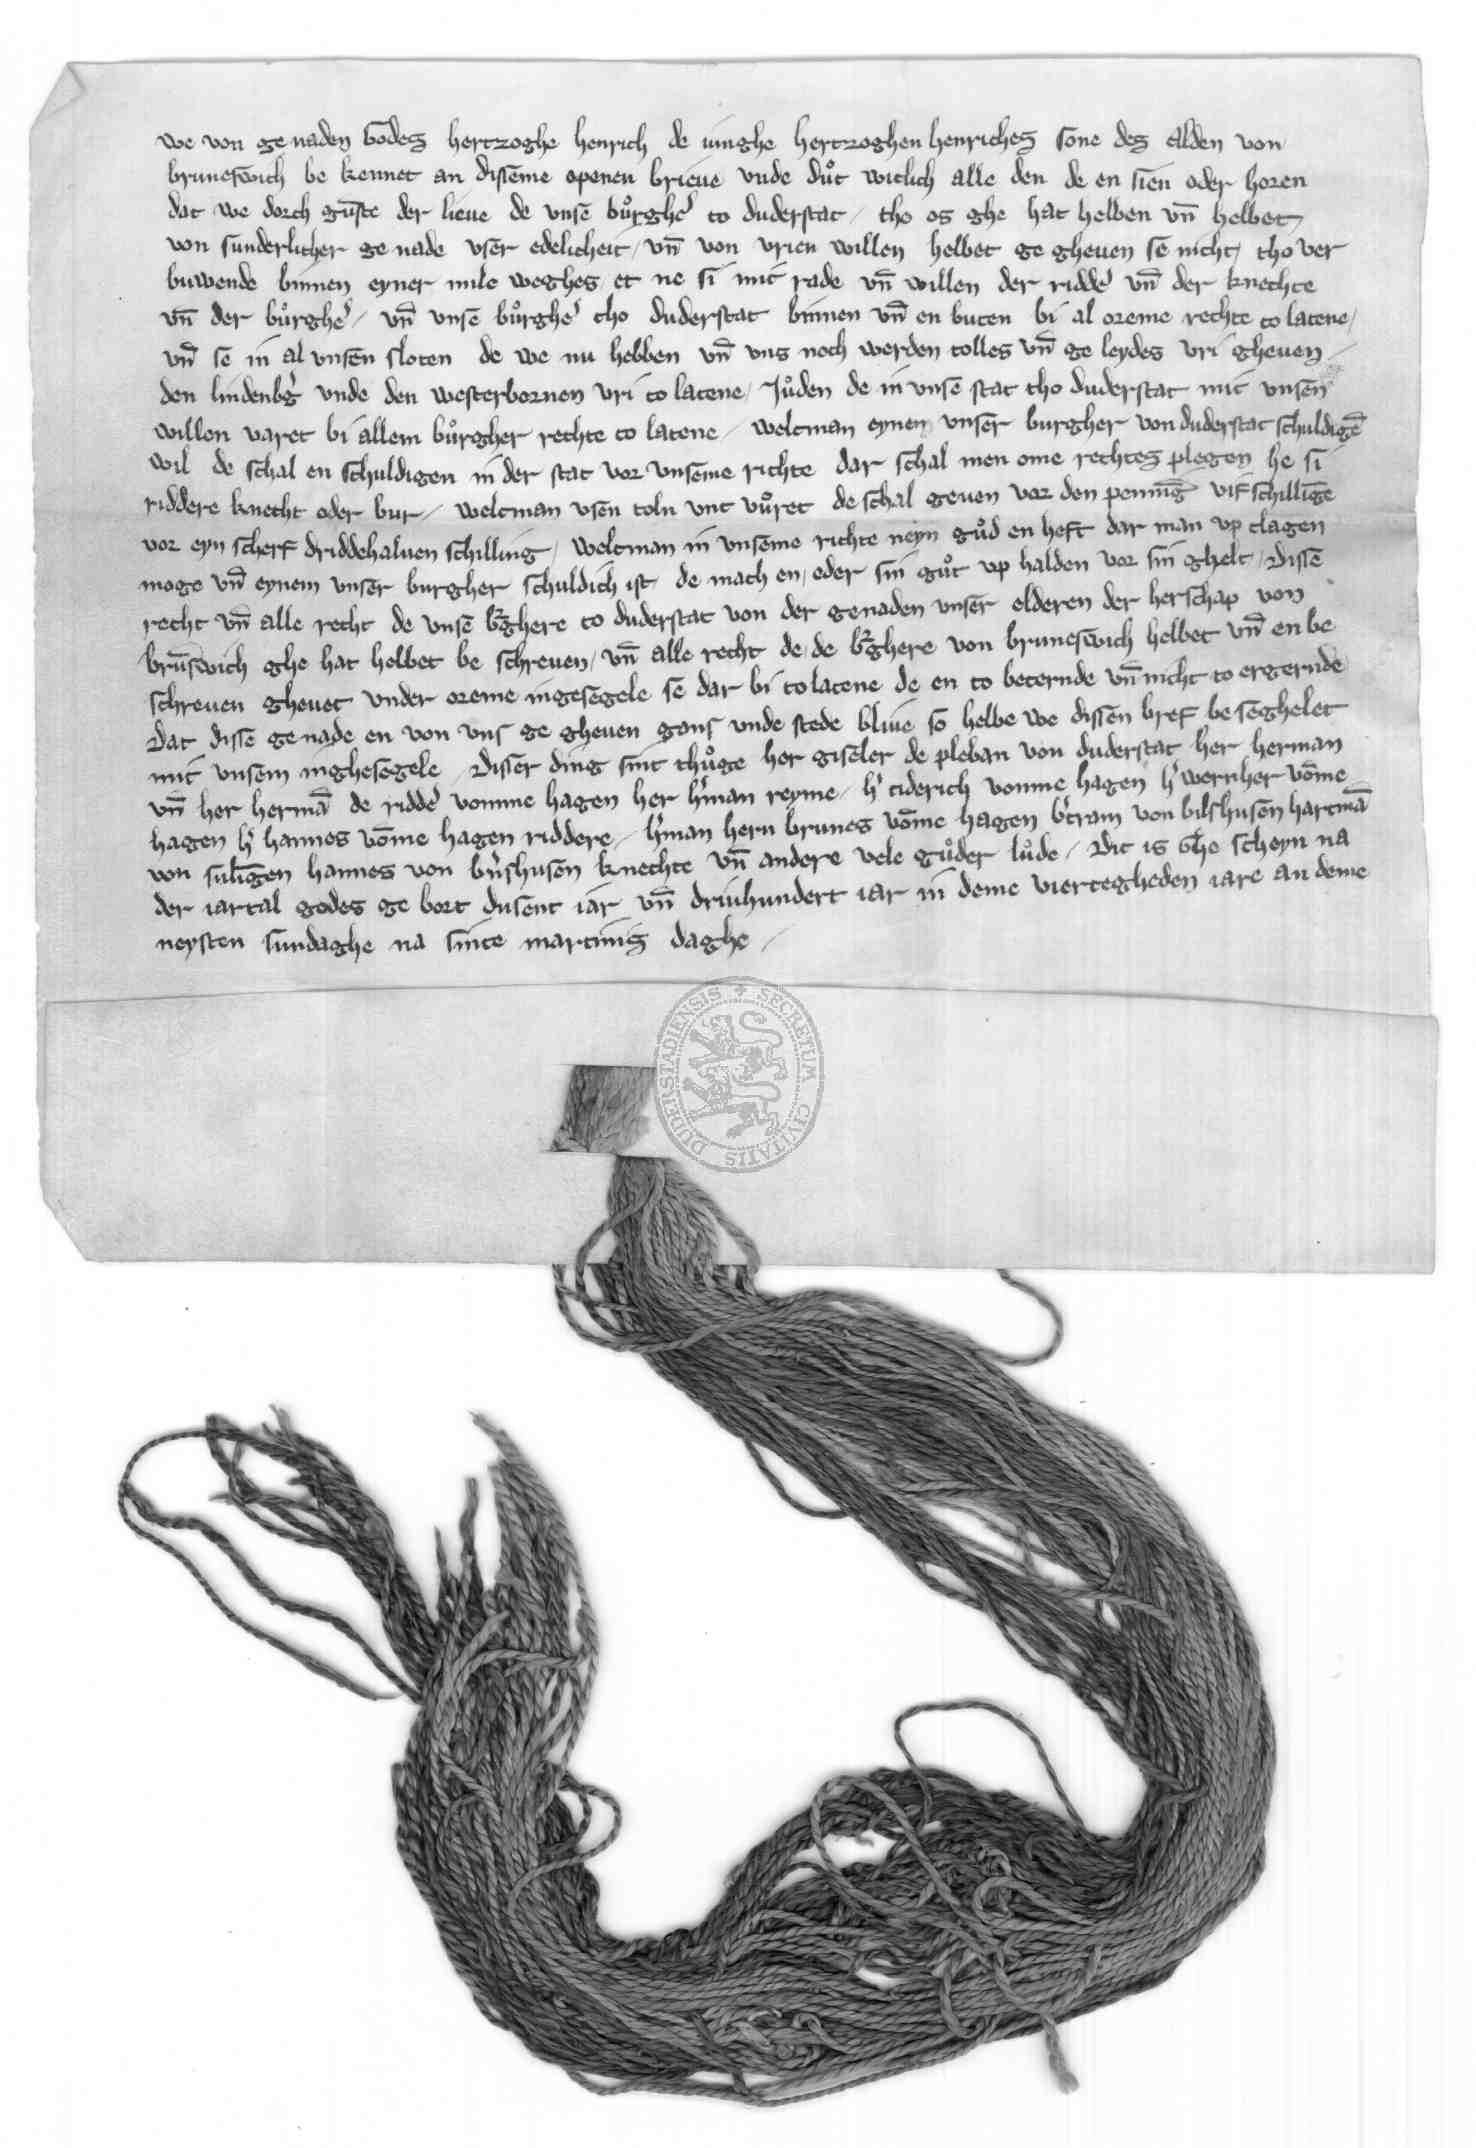 We von ge naden Godes hertzoghe henrich de iunghe hertzoghen henriches sone des Alden von
bruneswich be kennet an disseme openen brieve vnde důt witlich alle den de en sien oder horen
dat we dorch gunste der lieve de vnse bůrgher to duderstat / tho os ghe hat hebben vn̄ hebbet /
von sunderlicher ge nade vser edelicheit / vn̄ von vrien willen hebbet ge gheven se nicht / tho ver
buwende binnen eyner mile weghes / et ne si mit rade vn̄ willen der ridder vn̄ der knechte
vn̄ der bůrgher / vn̄ vnse bůrgher tho duderstat binnen vn̄ en buten bi al oreme rechte to latene /
vn̄ se in al vnsen sloten de we nu hebben vn̄ vns noch werden tolles vn̄ ge leydes vri gheven /
den lindenbg̾ vnde den westerbornen vri to latene / Jůden de in vnse stat tho duderstat mit vnsen
willen varet bi allem bůrgher rechte to latene / Welcman eynen vnser burgher von duderstat schuldigē
wil de schal en schuldigen in der stat vor vnseme richte dar schal men ome rechtes plegen he si
riddere knecht oder bur / Welcman vsen toln vnt vůret de schal geven vor den pennīg vif schillīge
vor eyn scherf driddehalven schilling / Welcman in vnseme richte neyn gůd en heft dar man vp clagen
moge vn̄ eynem vnser burgher schuldich ist de mach en / eder sin gůt vp halden vor sin ghelt / Disse
recht vn̄ alle recht de vnse bg̾here to duderstat von der genaden vnser elderen der herschap von
brūswich ghe hat hebbet be schreven / vn̄ alle recht de / de bg̾here von bruneswich hebbet vn̄ en be
schreven ghevet vnder oreme ingesegele se dar bi to latene de en to beternde vn̄ nicht to ergernde
Dat disse ge nade en von vns ge gheven gans vnde stede blive so hebbe we dissen bref be seghelet
mit vnsem inghesegele / Disser ding sint thůge her giseler de pleban von duderstat her herman
vn̄ her hermā de ridder vomme hagen her h̾man reyme / h̾ tiderich vomme hagen h̾ wernher vōme
hagen h̾ hannes vōme hagen riddere / h̾man hern brunes vōme hagen b̾tram von bilshusen hartmā
von sulīgen hannes von b̾nshusen knechte vn̄ andere vele gůder lůde / Dit is Ghe scheyn na
der iartal godes ge bort dusent iar vn̄ driuhundert iar in deme viertegheden iare an deme
neysten sundaghe na sinte martinis daghe /
SECRETUM CIVITATIS DUDERSTADIENSIS